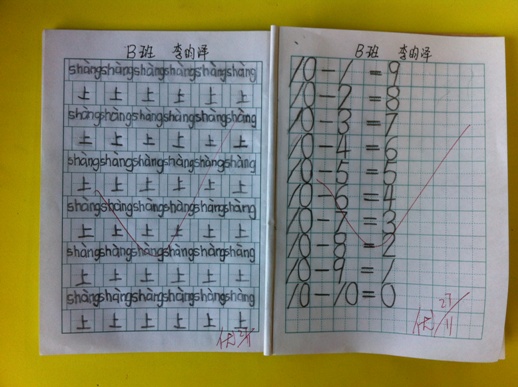 B班 李昀泽
shàngshàngshàngshàngshàngshàng
上 上 上 上 上 上
shàngshàngshàngshàngshàngshàng
上 上 上 上 上 上
shàngshàngshàngshàngshàngshàng
上 上 上 上 上 上
shàngshàngshàngshàngshàngshàng
上 上 上 上 上 上
shàngshàngshàngshàngshàngshàng
上 上 上 上 上 上
shàngshàngshàngshàngshàngshàng
上 上 上 上 上 上
优
B班 李昀泽
10-1=9
10-2=8
10-3=7
10-4=6
10-5=5
10-6=4
10-7=3
10-8=2
10-9=1
10-10=0
优 27/11